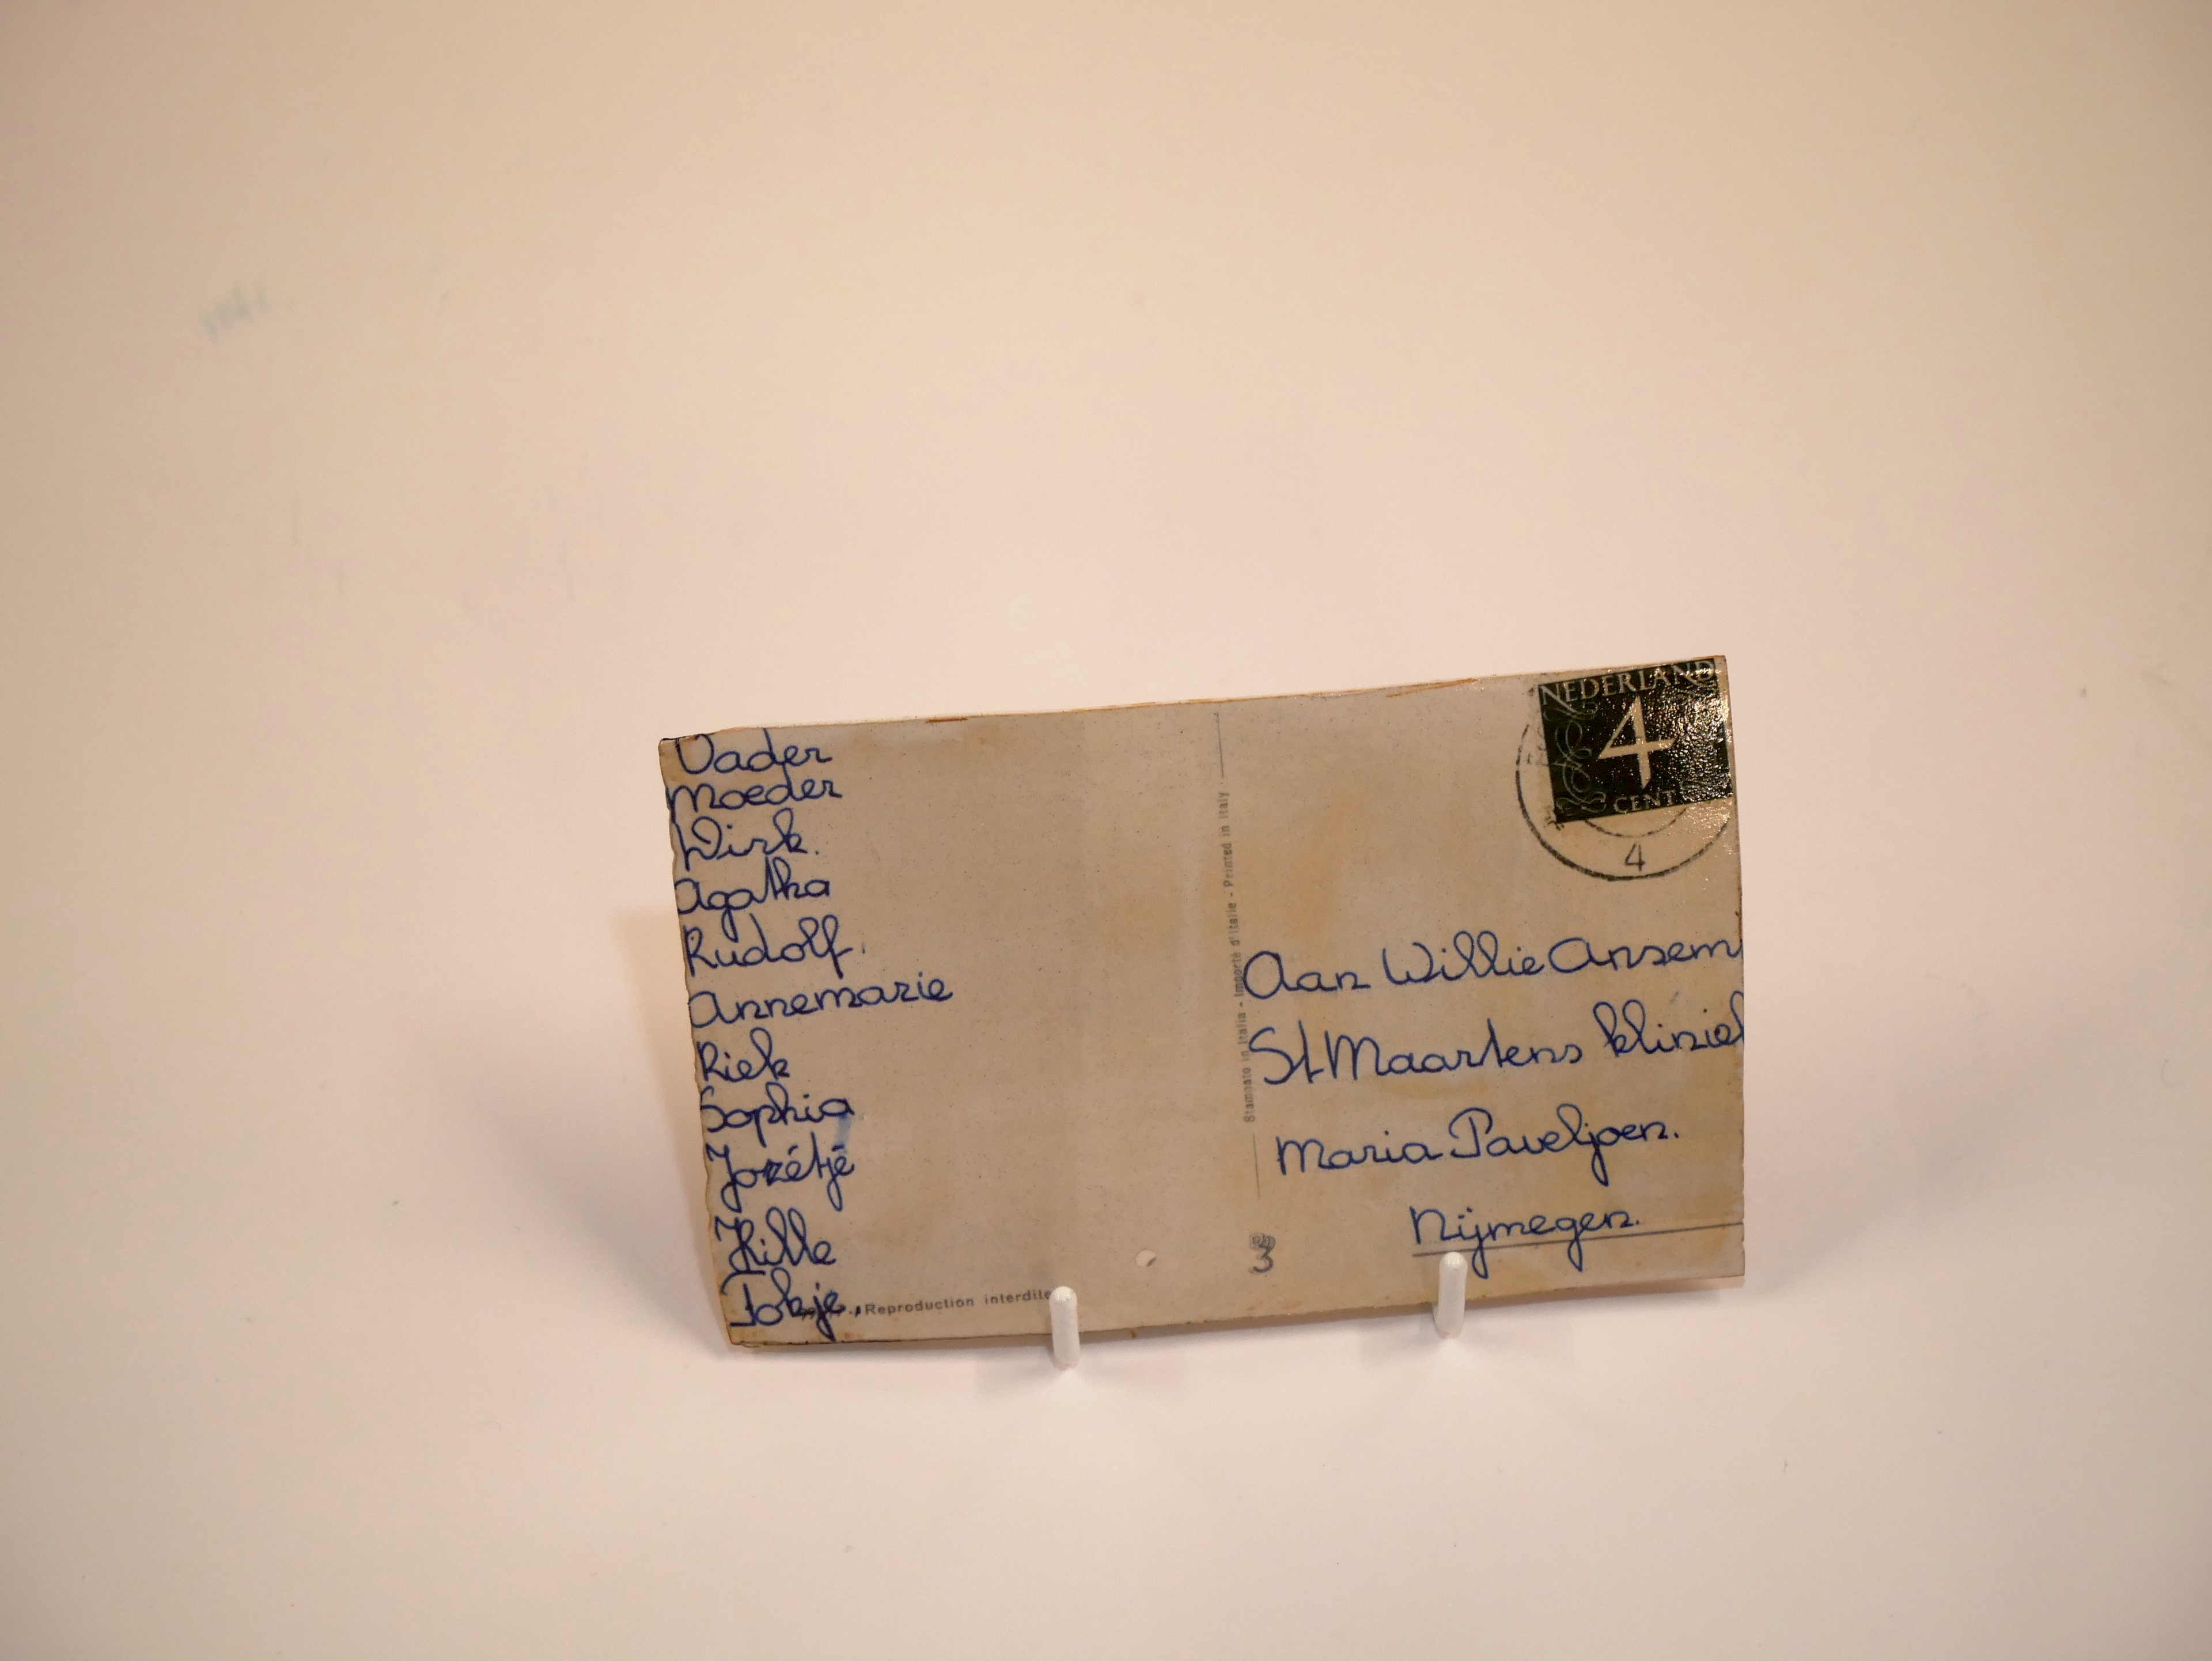 Vader
Moeder
Dirk.
Agatha
Rudolf.
Annemarie
Riek
Sophia
Jozétjé
Hille
Tokje.
Reproduction interdite
Stampato in Italia - Importé d'Italie - Printed in Italy
NEDERLAND
4
CENT
4
Aan Willie Ansem
St Maartens kliniek
Maria Paveljoen.
Nijmegen.
3